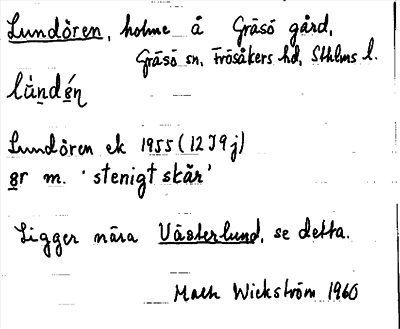 Lundören, holme å Gräsö gård,
Gräsö sn, Frösåkers hd, Sthlms l.
lùndǿn̥
Lundören ek 1955 (12 I 9 j)
ør m. 'stenigt skär'
Ligger nära Västerlund, se detta.
Math Wickström 1960